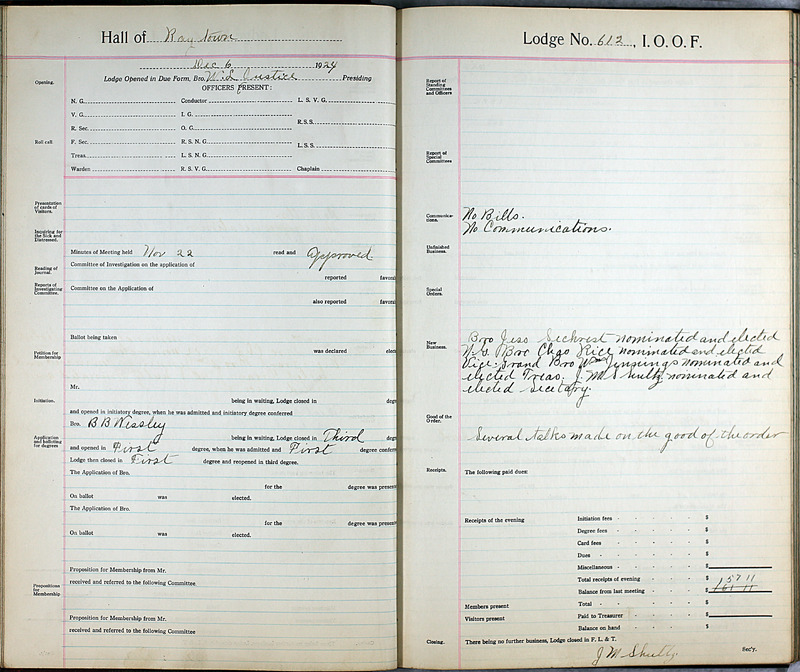 Hall of Raytown
Dec 6 1924
Opening.
Lodge Opened in Due Form, Bro. W.S. Justice Presiding
OFFICERS PRESENT:
N. G. Conductor L. S. V. G.
V. G. I. G. R.S.S.
R. Sec. O. G.
Roll call.
F. Sec. R. S. N. G. L.S.S.
Treas. L. S. N. G.
Warden R. S. V. G. Chaplain
Presentation of cards of Visitors.
Inquiring for the Sick and Distressed.
Minutes of Meeting held Nov 22 read and Approved
Reading of Journal.
Committee of Investigation on the application of
reported favora
Reports of Investigating Committee.
Committee on the Application of
also reported favora
Ballot being taken
Petition for Membership
was declared elec
Mr.
Initiation.
being in waiting, Lodge closed in degr
and opened in initiatory degree, when he was admitted and initiatory degree conferred
Bro. B B Wissley
Application and balloting for degrees
being in waiting, Lodge closed in Third degr
and opened in First degree, when he was admitted and First degree conferr
Lodge then closed in First degree and reopened in third degree.
The Application of Bro.
for the degree was present
On ballot was elected.
The Application of Bro.
for the degree was present
On ballot was elected.
Proposition for Membership from Mr.
Propositions for Membership
received and referred to the following Committee
Proposition for Membership from Mr.
received and referred to the following Committee
Lodge No. 612, I. O. O. F.
Report of Standing Committees and Officers
Report of Special Committees
Communications.
No Bills.
No Communications.
Unfinished Business.
Special Orders.
New Business.
Bro Jess Sechrest nominated and elected
N.G. Bro Chas Rice nominated and elected
Vice-Grand Bro Wm Jennings nominated and
elected Treas. J M Shultz nominated and
elected Secetary
Good of the Order.
Several talks made on the good of the order
Receipts.
The following paid dues:
Receipts of the evening Initiation fees $
Degree fees $
Card fees $
Dues $
Miscellaneous $
Total receipts of evening $
Balance from last meeting
Members present Total $
Visitors present Paid to Treasurer $
Balance on hand $
Closing.
There being no further business, Lodge closed in F. L. & T.
J M Shultz Sec'y.